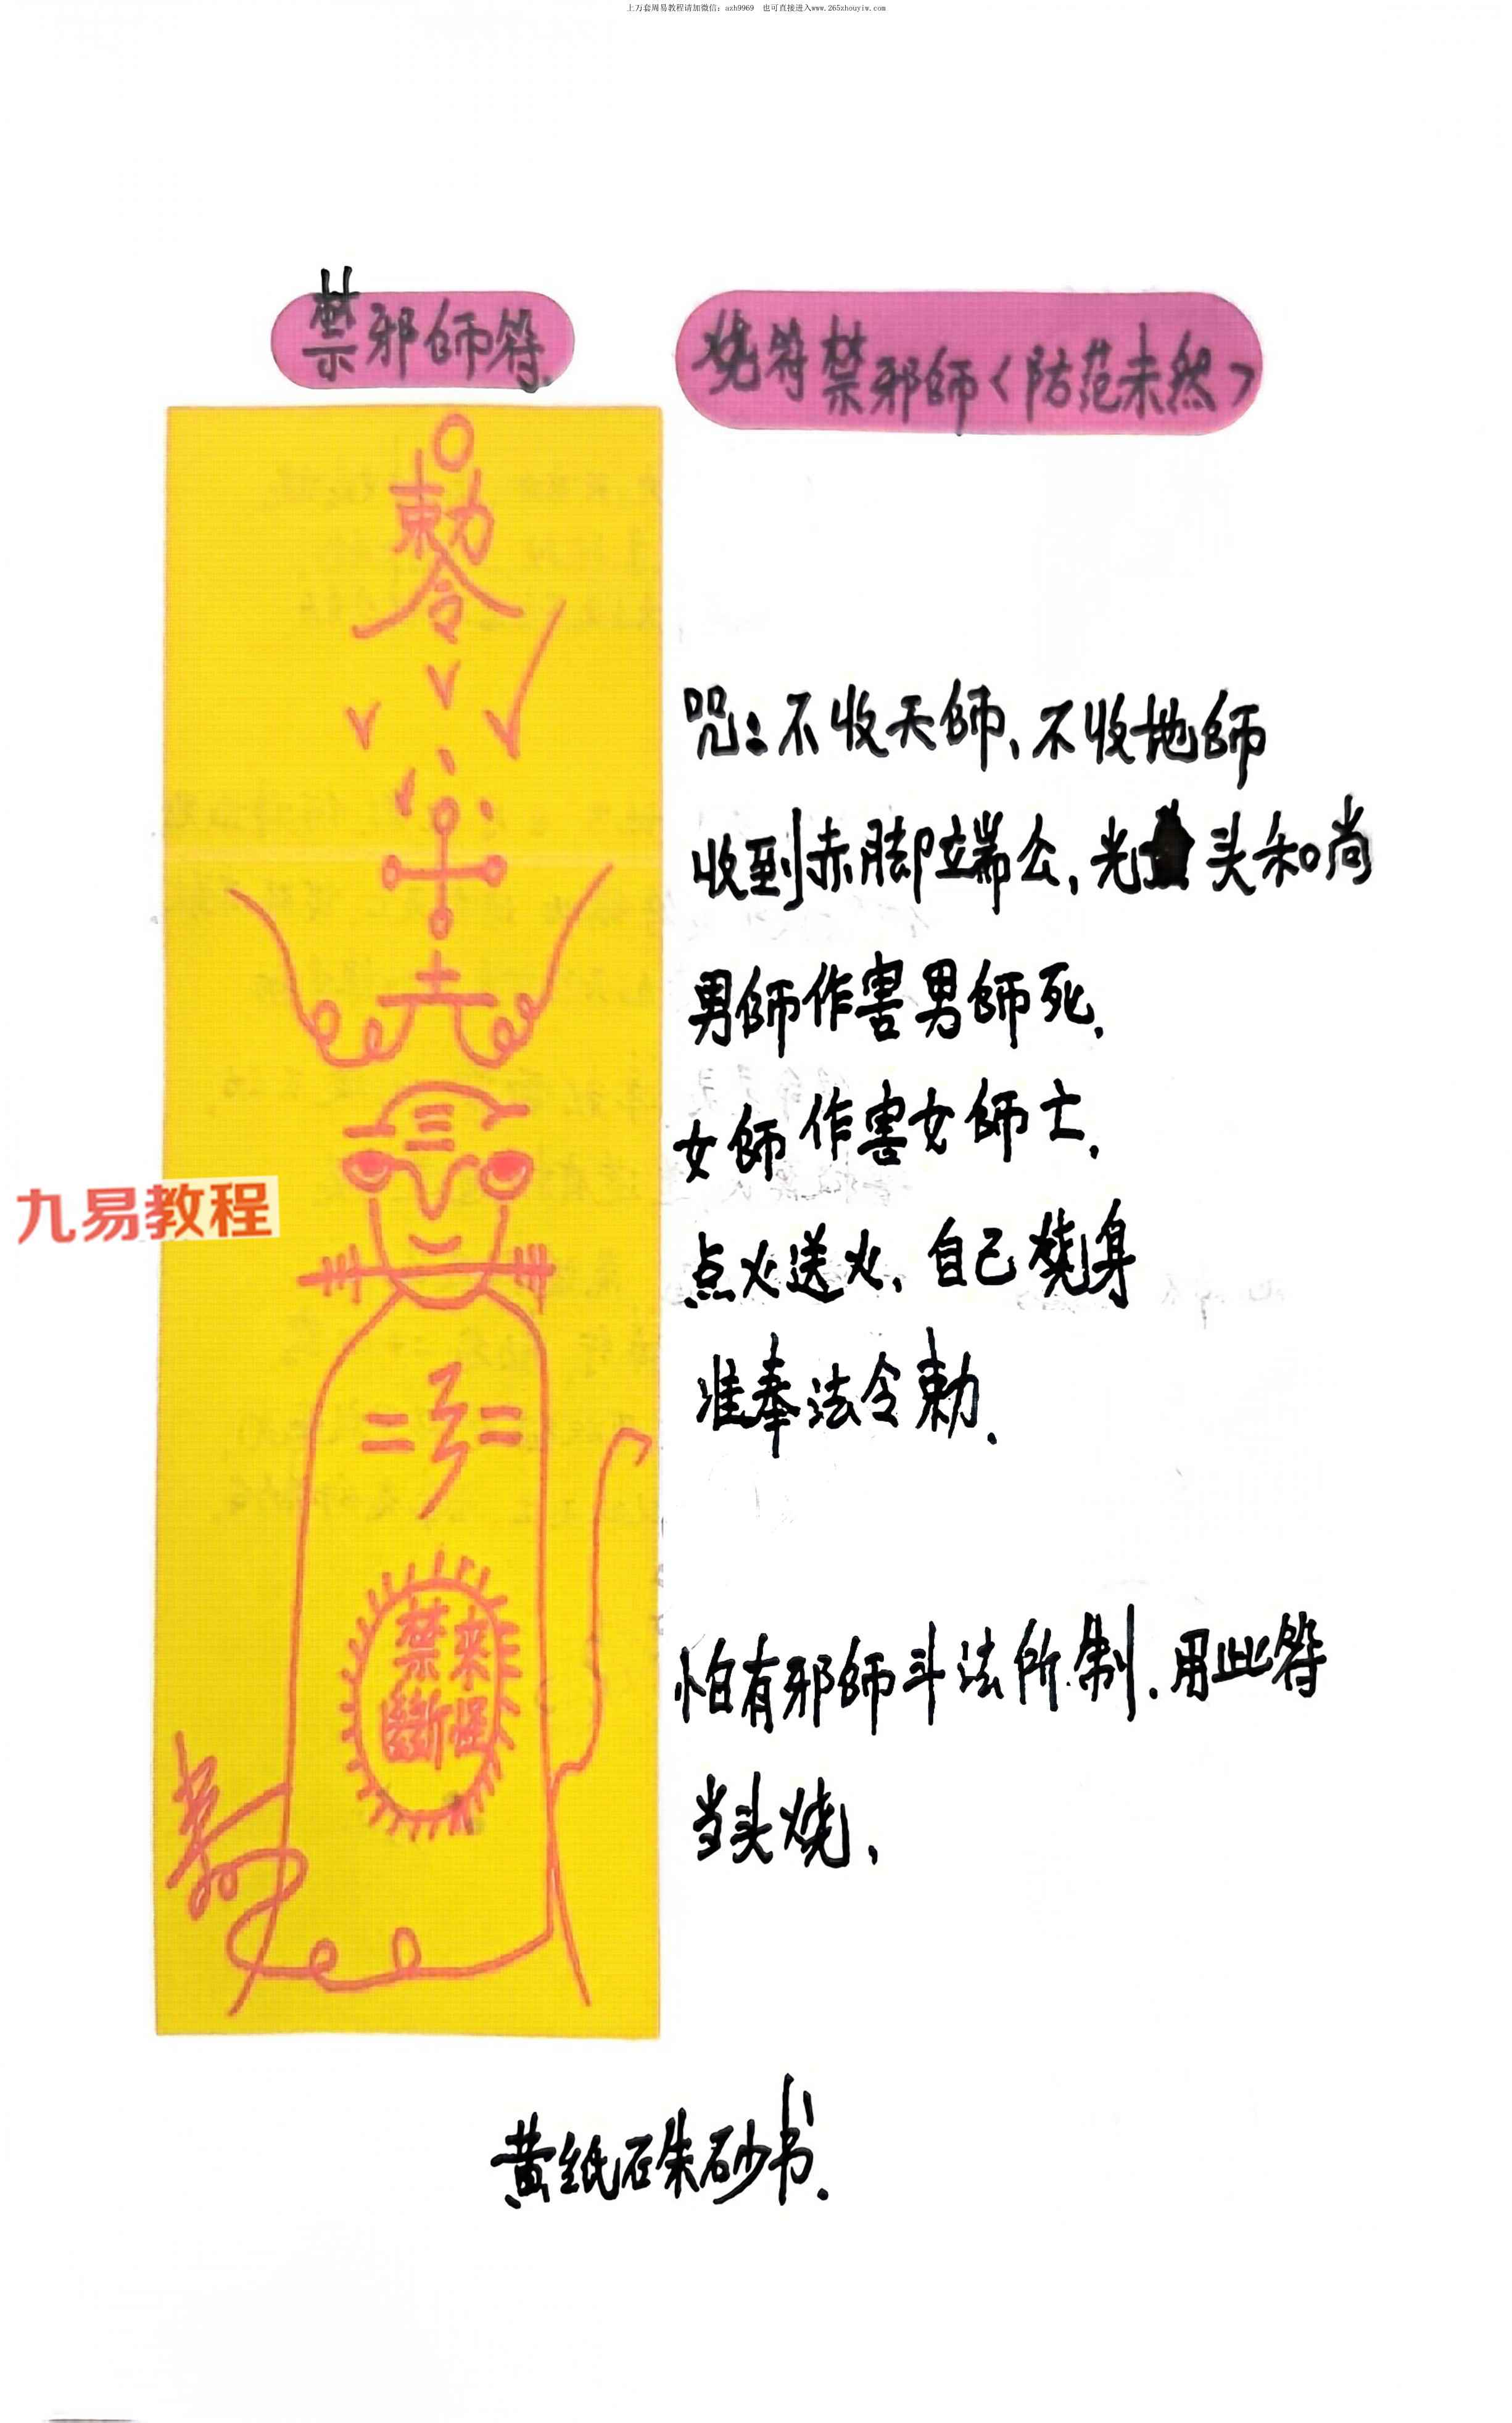 上万套周易教程请加微信：azh9969 也可直接进入www.265zhouyiw.com
禁邪师符.
烧符禁邪师<防范未然>
勅令
咒：不收天师、不收地师
收到赤脚端公，光头和尚
男师作害男师死.
女师作害女师亡.
点火送火，自己烧身
准奉法令勅.
九易教程
禁来
斷怪
怕有邪师斗法所制.用此符
当头烧，
黄纸石朱砂书.